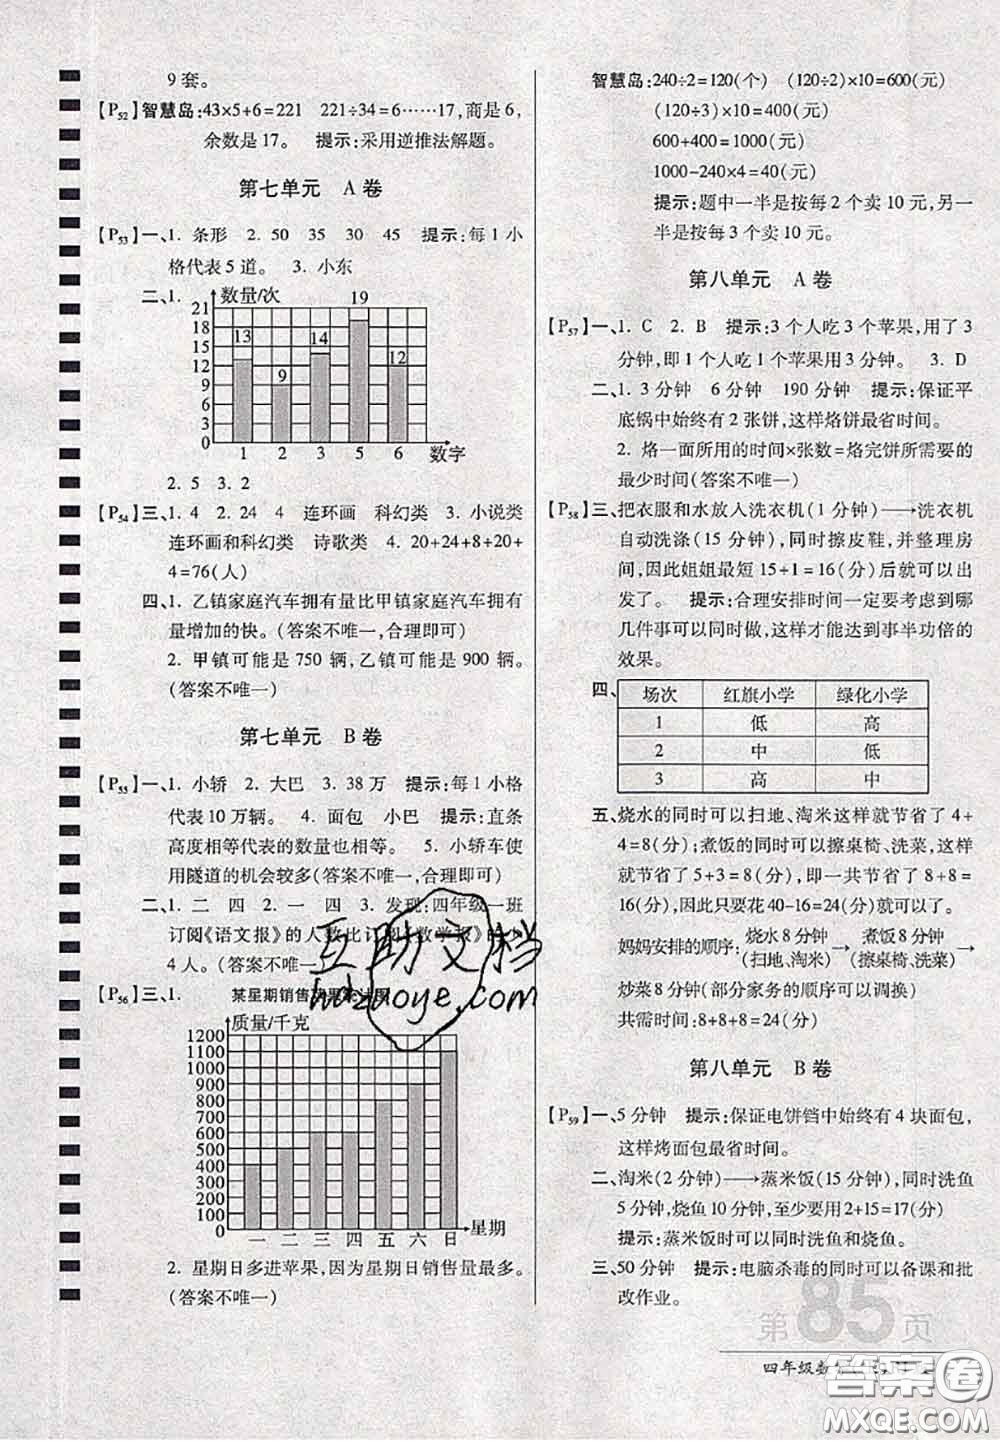 9 套。
【P52】智慧岛:43×5+6=221 221÷34=6……17,商是 6,
余数是 17。 提示:采用逆推法解题。
第七单元 A 卷
【P53】一、1. 条形 2. 50 35 30 45 提示:每 1 小
格代表 5 道。 3. 小东
二、1.
数量/次
21
19
18
15
12
9
6
3
0
13
9
14
19
12
1 2 3 4 5 6 数字
2. 5 3. 2
【P54】三、1. 4 2. 24 4 连环画 科幻类 3. 小说类
连环画和科幻类 诗歌类 4. 20+24+8+20+
4=76(人)
四、1. 乙镇家庭汽车拥有量比甲镇家庭汽车拥有
量增加的快。(答案不唯一,合理即可)
2. 甲镇可能是 750 辆,乙镇可能是 900 辆。
(答案不唯一)
第七单元 B 卷
【P55】一、1. 小轿 2. 大巴 3. 38 万 提示:每 1 小格
代表 10 万辆。 4. 面包 小巴 提示:直条
高度相等代表的数量也相等。 5. 小轿车使
用隧道的机会较多(答案不唯一,合理即可)
二、1. 二 四 2. 一 四 3. 发现:四年级一班
订阅《语文报》的人数比订阅《数学报》的少
4 人。(答案不唯一)
【P56】三、1. 某星期销售
质量/千克
1200
1100
1000
900
800
700
600
500
400
300
200
100
0
一 二 三 四 五 六 日 星期
2. 星期日多进苹果,因为星期日销售量最多。
(答案不唯一)
智慧岛:240÷2=120(个) (120÷2)×10=600(元)
(120÷3)×10=400(元)
600+400=1000(元)
1000-240×4=40(元)
提示:题中一半是按每 2 个卖 10 元,另一
半是按每 3 个卖 10 元。
第八单元 A 卷
【P57】一、1. C 2. B 提示:3 个人吃 3 个苹果,用了 3
分钟,即 1 个人吃 1 个苹果用 3 分钟。 3. D
二、1. 3 分钟 6 分钟 190 分钟 提示:保证平
底锅中始终有 2 张饼,这样烙饼最省时间。
2. 烙一面所用的时间×张数=烙完饼所需要的
最少时间(答案不唯一)
【P58】三、把衣服和水放入洗衣机(1 分钟)→洗衣机
自动洗涤(15 分钟),同时擦皮鞋,并整理房
间,因此姐姐最短 15+1=16(分)后就可以出
发了。 提示:合理安排时间一定要考虑到哪
几件事可以同时做,这样才能达到事半功倍的
效果。
四、
场次 红旗小学 绿化小学
1 低 高
2 中 低
3 高 中
五、烧水的同时可以扫地、淘米这样就节省了 4+
4=8(分);煮饭的同时可以擦桌椅、洗菜,这样
就节省了 5+3=8(分),即一共节省了 8+8=
16(分),因此只要花 40-16=24(分)就够了。
妈妈安排的顺序:烧水 8 分钟(扫地、淘米)→煮饭 8 分钟(擦桌椅、洗菜)→
炒菜 8 分钟(部分家务的顺序可以调换)。
共需时间:8+8+8=24(分)
第八单元 B 卷
【P59】一、5 分钟 提示:保证电饼铛中始终有 4 块面包,
这样烤面包最省时间。
二、淘米(2 分钟)→蒸米饭(15 分钟),同时洗鱼
5 分钟,烧鱼 10 分钟,至少要用 2+15=17(分)
提示:蒸米饭时可以洗鱼和烧鱼。
三、50 分钟 提示:电脑杀毒的同时可以备课和批
改作业。
第85页
四年级数
互助文档
hdzuoye.com
答案圈
MXQE.COM